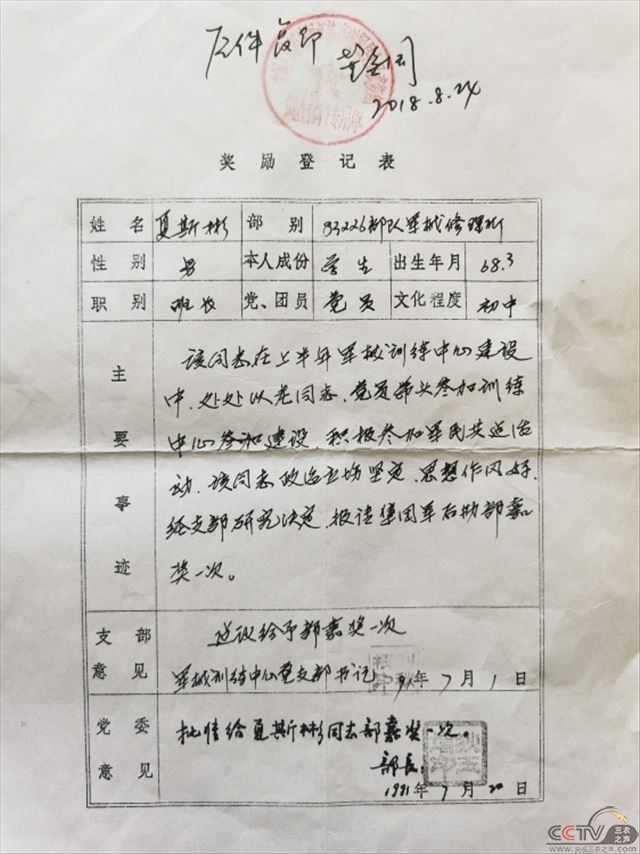 原件复印
2018.8.24
奖励登记表
姓名 夏斯彬 部别 83226部队军械修理所
性别 男 本人成份 学生 出生年月 68.3
职别 班长 党、团员 党员 文化程度 初中
主要事迹
该同志在上半年军械训练中心建设
中,处处以老同志、党员带头参加训练
中心参加建设,积极参加军民共建活
动,该同志政治立场坚定,思想作风好,
经支部研究决定,报请集团军后勤部嘉
奖一次。
支部意见
建议给予部嘉奖一次
军械训练中心党支部书记 91年7月1日
党委意见
批准给夏斯彬同志部嘉奖一次。
部长
1991年7月20日
CCTV 三农之声
www.央视三农之声.com